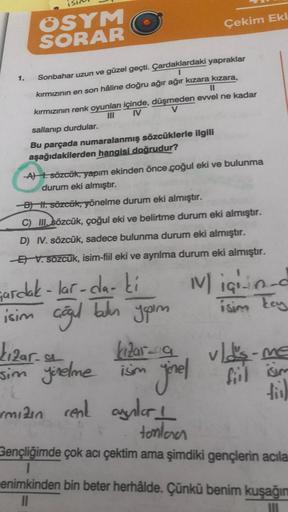 ÖSYM
SORAR
Çekim Ekl
1. Sonbahar uzun ve güzel geçti. Çardaklardaki yapraklar
I
kırmızının en son hâline doğru ağır ağır kızara kızara,
II
kırmızının renk oyunları içinde, düşmeden evvel ne kadar
III IV V
sallanıp durdular.
Bu parçada numaralanmış sözcüklerle ilgili
aşağıdakilerden hangisi doğrudur?
A) I. sözcük, yapım ekinden önce çoğul eki ve bulunma
durum eki almıştır.
B) II. sözcük, yönelme durum eki almıştır.
C) III. sözcük, çoğul eki ve belirtme durum eki almıştır.
D) IV. sözcük, sadece bulunma durum eki almıştır.
E) V. sözcük, isim-fiil eki ve ayrılma durum eki almıştır.
çardak-lar-da-ki IV) içi-n-d
isim çoğul bulun yapım isim
kızar-a kızar-a V) düş-me
isim yönelme isim yönel fiil isim
fiil
rmızın renk oyunlar ı
Gençliğimde çok acı çektim ama şimdiki gençlerin acıla
I
enimkinden bin beter herhâlde. Çünkü benim kuşağım
II III